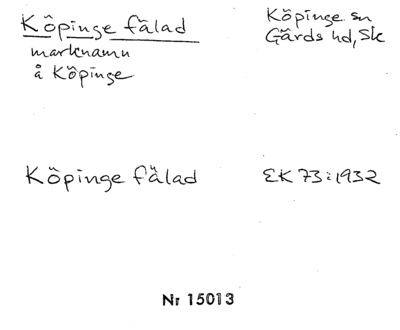 Köpinge fälad
Köpinge sn
Gärds hd, Sk
marknamn
å Köpinge
Köpinge fälad
EK 73:1932
Nr 15013